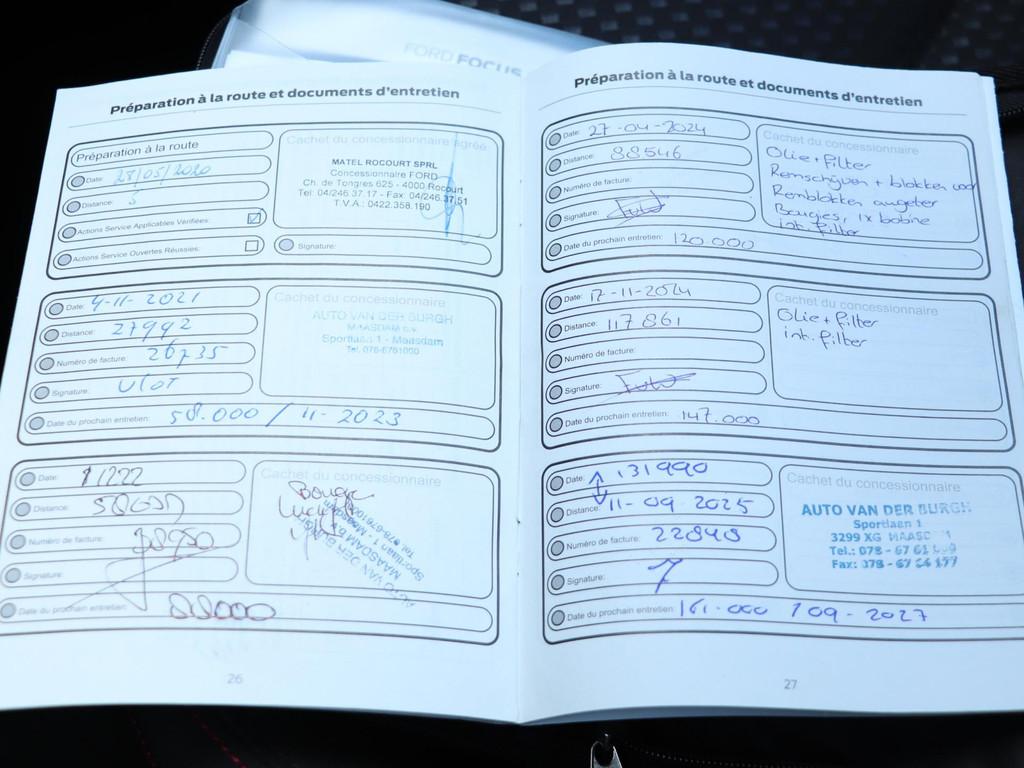 FORD FOCUS
Préparation à la route et documents d'entretien
Préparation à la route
Date: 28/05/2020
Distance: 3
Actions Service Applicables Vérifiées:
Actions Service Ouvertes Réussies:
Cachet du concessionnaire agréé
MATEL ROCOURT SPRL
Concessionnaire FORD
Ch. de Tongres 625 - 4000 Rocourt
Tel: 04/246.37.17 - Fax: 04/246.37.51
T.V.A.: 0422.358.190
Signature:
Date: 4-11-2021
Distance: 27992
Numéro de facture: 26735
Signature:
Cachet du concessionnaire
AUTO VAN DER BURGH
MAASDAM B.V.
Sportlaan 1 - Maasdam
Tel. 078-6761000
Date du prochain entretien: 58.000 / 11-2023
Date:
Distance:
Numéro de facture:
Signature:
Cachet du concessionnaire
Bougie
AUTO VAN DER BURGH
MAASDAM B.V.
Sportlaan 1 - Maasdam
Date du prochain entretien:
26
Préparation à la route et documents d'entretien
Date: 27-04-2024
Distance: 88546
Numéro de facture:
Signature:
Cachet du concessionnaire
Olie + filter
Remschijven + blokken voor
Remblokken achter
Bougies, 1x bobine
int. filter
Date du prochain entretien: 120.000
Date: 17-11-2024
Distance: 117861
Numéro de facture:
Signature:
Cachet du concessionnaire
Olie + filter
int. filter
Date du prochain entretien: 147.000
Date: 131990
Distance: 11-09-2025
Numéro de facture: 22848
Signature:
Cachet du concessionnaire
AUTO VAN DER BURGH
Sportlaan 1
3299 XG MAASDAM
Tel.: 078 - 67 61
Fax: 078 - 67 64 177
Date du prochain entretien: 161.000 / 09-2027
27